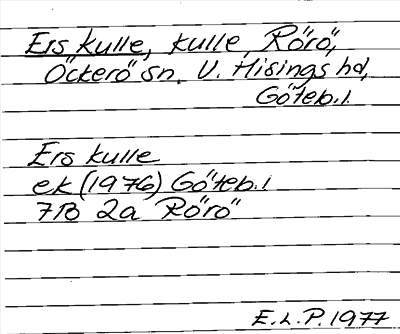 Ers kulle, kulle, Rörö,
Öckerö sn. V. Hisings hd,
Göteb.l.
Ers kulle
ek (1976) Göteb.l
7B 2a Rörö
E.L.P. 1977